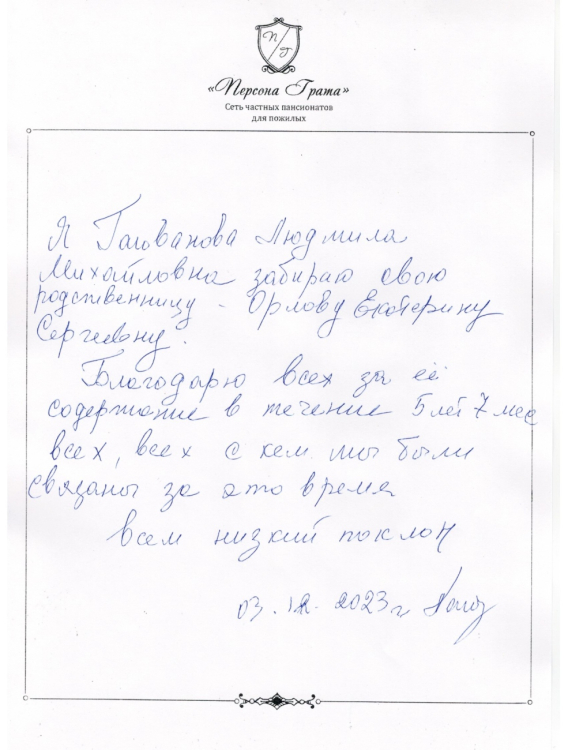 П
Г
«Персона Грата»
Сеть частных пансионатов
для пожилых
Я Голованова Людмила
Михайловна забираю свою
родственницу - Орлову Екатерину
Сергеевну.
Благодарю всех за её
содержание в течение 5 лет 7 мес
всех, всех с кем мы были
связаны за это время
всем низкий поклон
03.12.2023 г.